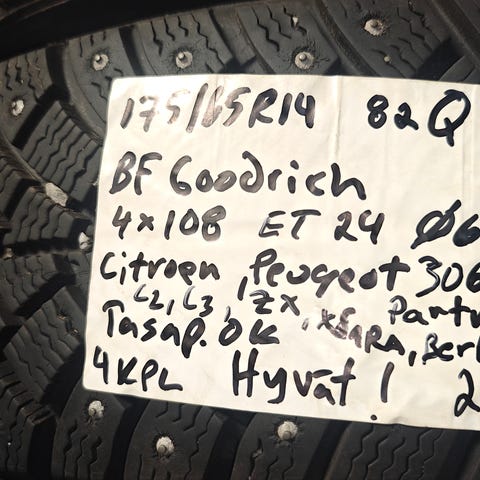 175/65R14 82Q
BF Goodrich
4x108 ET 24 Ø6
Citroen, Peugeot 306
C2, C3, ZX, XSARA, Berl
Tasap. OK
4KPL Hyvät! 2